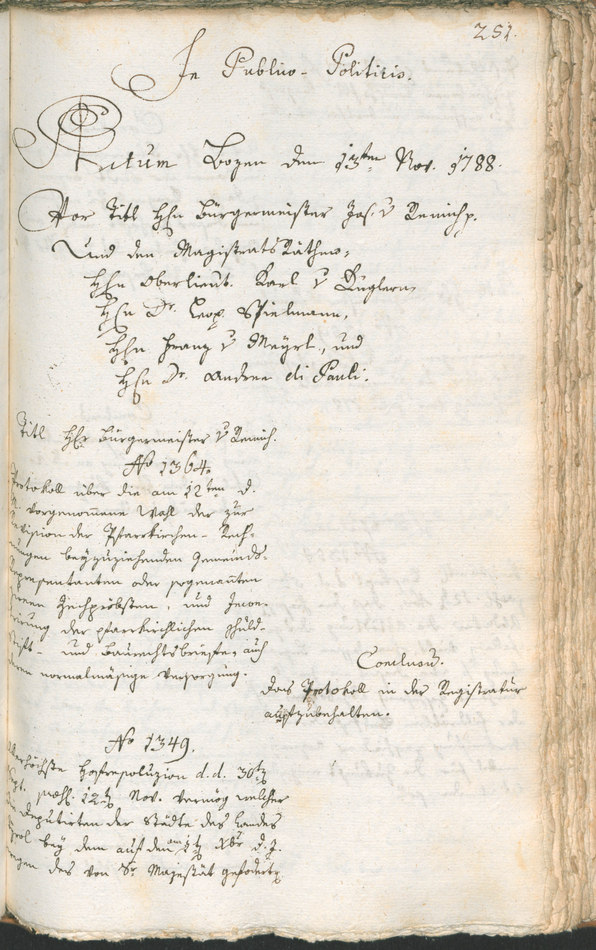 251.
In Publico-Politicis.
Actum Bozen den 13ten Nov. 1788.
Vor Titl Hhn Bürgermeister Jos. v Remich p.
Und den Magistrats Räthen,
Hhn Oberlieut. Karl v
Hhn Dr. Leop. Spielmann,
Hhn Franz v Mayrl, und
Hhn Dr. Andree di Pauli.
Titl Hhr Bürgermeister v Remich.
No 1364.
Protokoll über die am 12ten d.
M. vorgenommene Wahl der zur
Revision der Pfarrkirchen- Rech-
nungen beyzuziehenden Gemeinds-
Representanten oder sogenannten
Zechpröbsten, und Inven-
tirung der pfarrkirchlichen Schuld-
Stift- und Baurechtsbriefen, auch
deren normalmäsige Versorgung.
Conclusum.
das Protokoll in der Registratur
aufzubehalten.
No 1349.
Allerhöchste Hofresoluzion d. d. 30t
12t Nov. vermög welcher
die Deputirten der Städte des Landes
Tyrol bey dem auf den 1t Xbr d. J.
wegen des von Sr Majestät geforderten